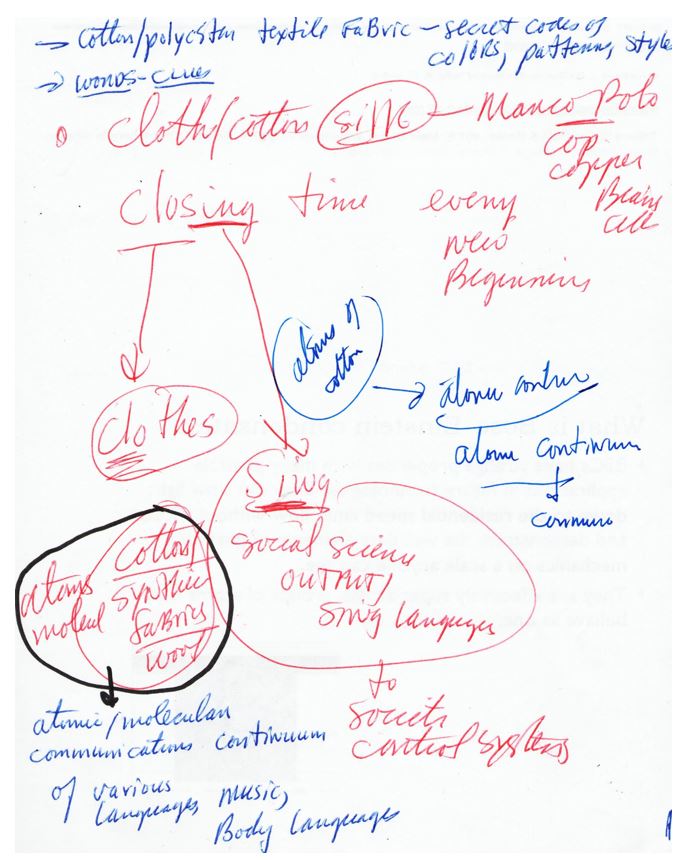 → Cotton/polyester textile Fabric – secret codes of
colors, patterns, style
→ words-clues
cloth/cotton silk – Marco Polo
cop
copper
Beans
cell
Closing time every
new
Beginning
atoms of
cotton
→ atomic
atomic continuum
clothes
Sing
Social science
OUTPUT/
Sing Languages
Cotton/
synthetic
Fabrics
wool
atoms
molecul
to
Society
control systems
atomic/molecular
communications continuum
of various
Languages, music,
Body Languages